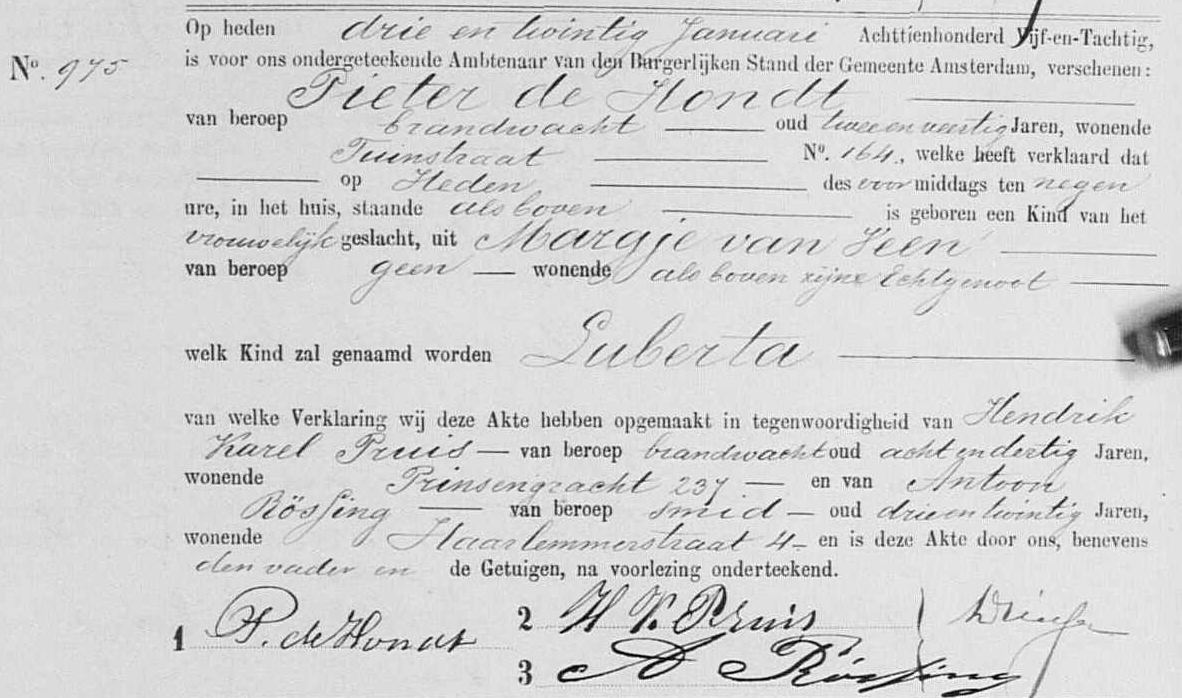 Op heden drie en twintig Januari Achttienhonderd Vijf-en-Tachtig,
No. 975
is voor ons ondergeteekende Ambtenaar van den Burgerlijken Stand der Gemeente Amsterdam, verschenen:
Pieter de Hondt
van beroep brandwacht oud twee en veertig Jaren, wonende
Tuinstraat No. 164, welke heeft verklaard dat
op Heden des voormiddags ten negen
ure, in het huis, staande als boven is geboren een Kind van het
vrouwelijk geslacht, uit Margje van Veen
van beroep geen wonende als boven zijne Echtgenoot
welk Kind zal genaamd worden Luberta
van welke Verklaring wij deze Akte hebben opgemaakt in tegenwoordigheid van Hendrik
Karel Pruis van beroep brandwacht oud acht en dertig Jaren,
wonende Prinsengracht 237 en van Antoon
Rössing van beroep smid oud drie en twintig Jaren,
wonende Haarlemmerstraat 4 en is deze Akte door ons, benevens
den vader en de Getuigen, na voorlezing onderteekend.
1 P. de Hondt
2 H K Pruis
3 A Rössing